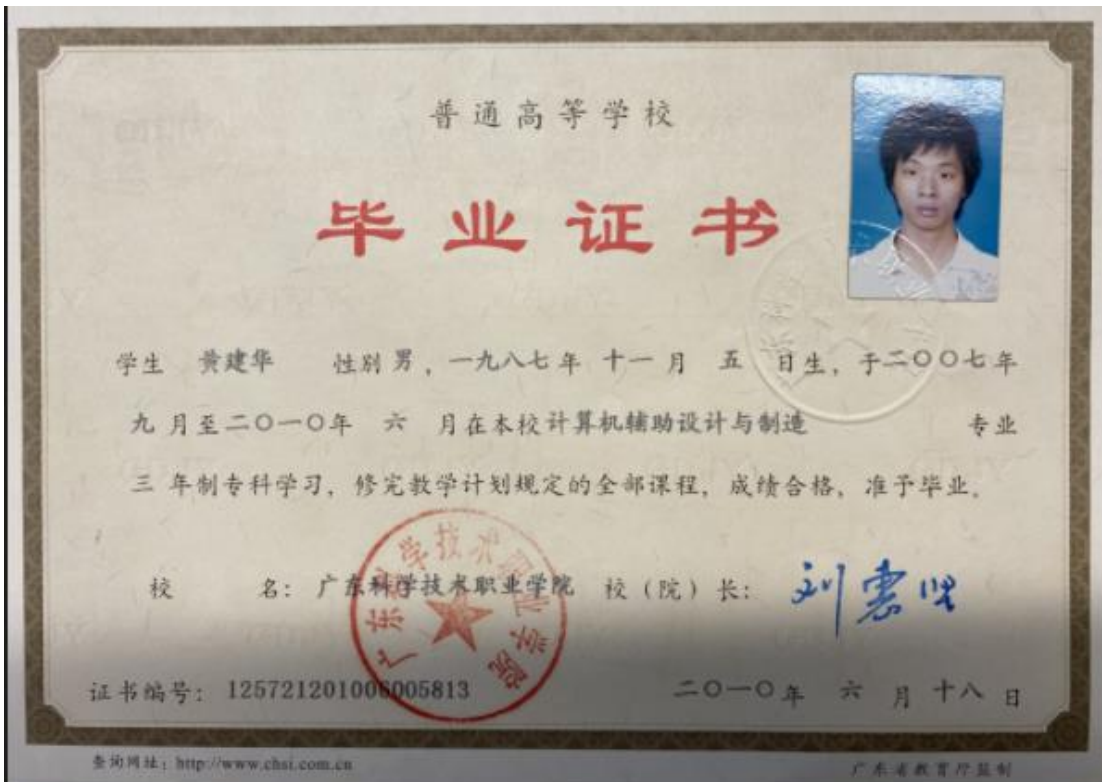 普通高等学校
毕业证书
学生 黄建华 性别 男，一九八七年 十一月 五 日生，于二〇〇七年
九 月至二〇一〇年 六 月在本校计算机辅助设计与制造 专业
三 年制专科学习，修完教学计划规定的全部课程，成绩合格，准予毕业。
校 名：广东科学技术职业学院 校（院）长：
广东科学技术职业学院
证书编号：125721201006005813 二〇一〇年 六 月 十八 日
查询网址：http://www.chsi.com.cn 广东省教育厅监制